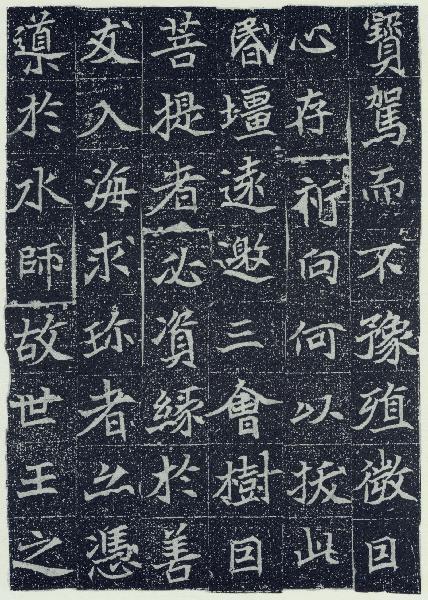 寶駕而不豫殖微囙
心存祈向何以拔此
昬壃遠邀三會樹囙
菩提者必資緣於善
友入海求珎者亦憑
導於水師故世王之